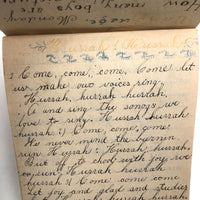 Monday
Hurrah! Hurrah!
1 Come, come, come. Come let
us make our voices ring.
Hurrah, hurrah hurrah.
And sing the songs we
love to sing. Hurrah hurrah
hurrah. Come, come, come.
We never mind the burnin
sun Hurrah, Hurrah, hurrah.
But off to school with joy we
run, Hurrah hurrah
hurrah. Come come come
Let joy and glad and studies
hurrah hurrah